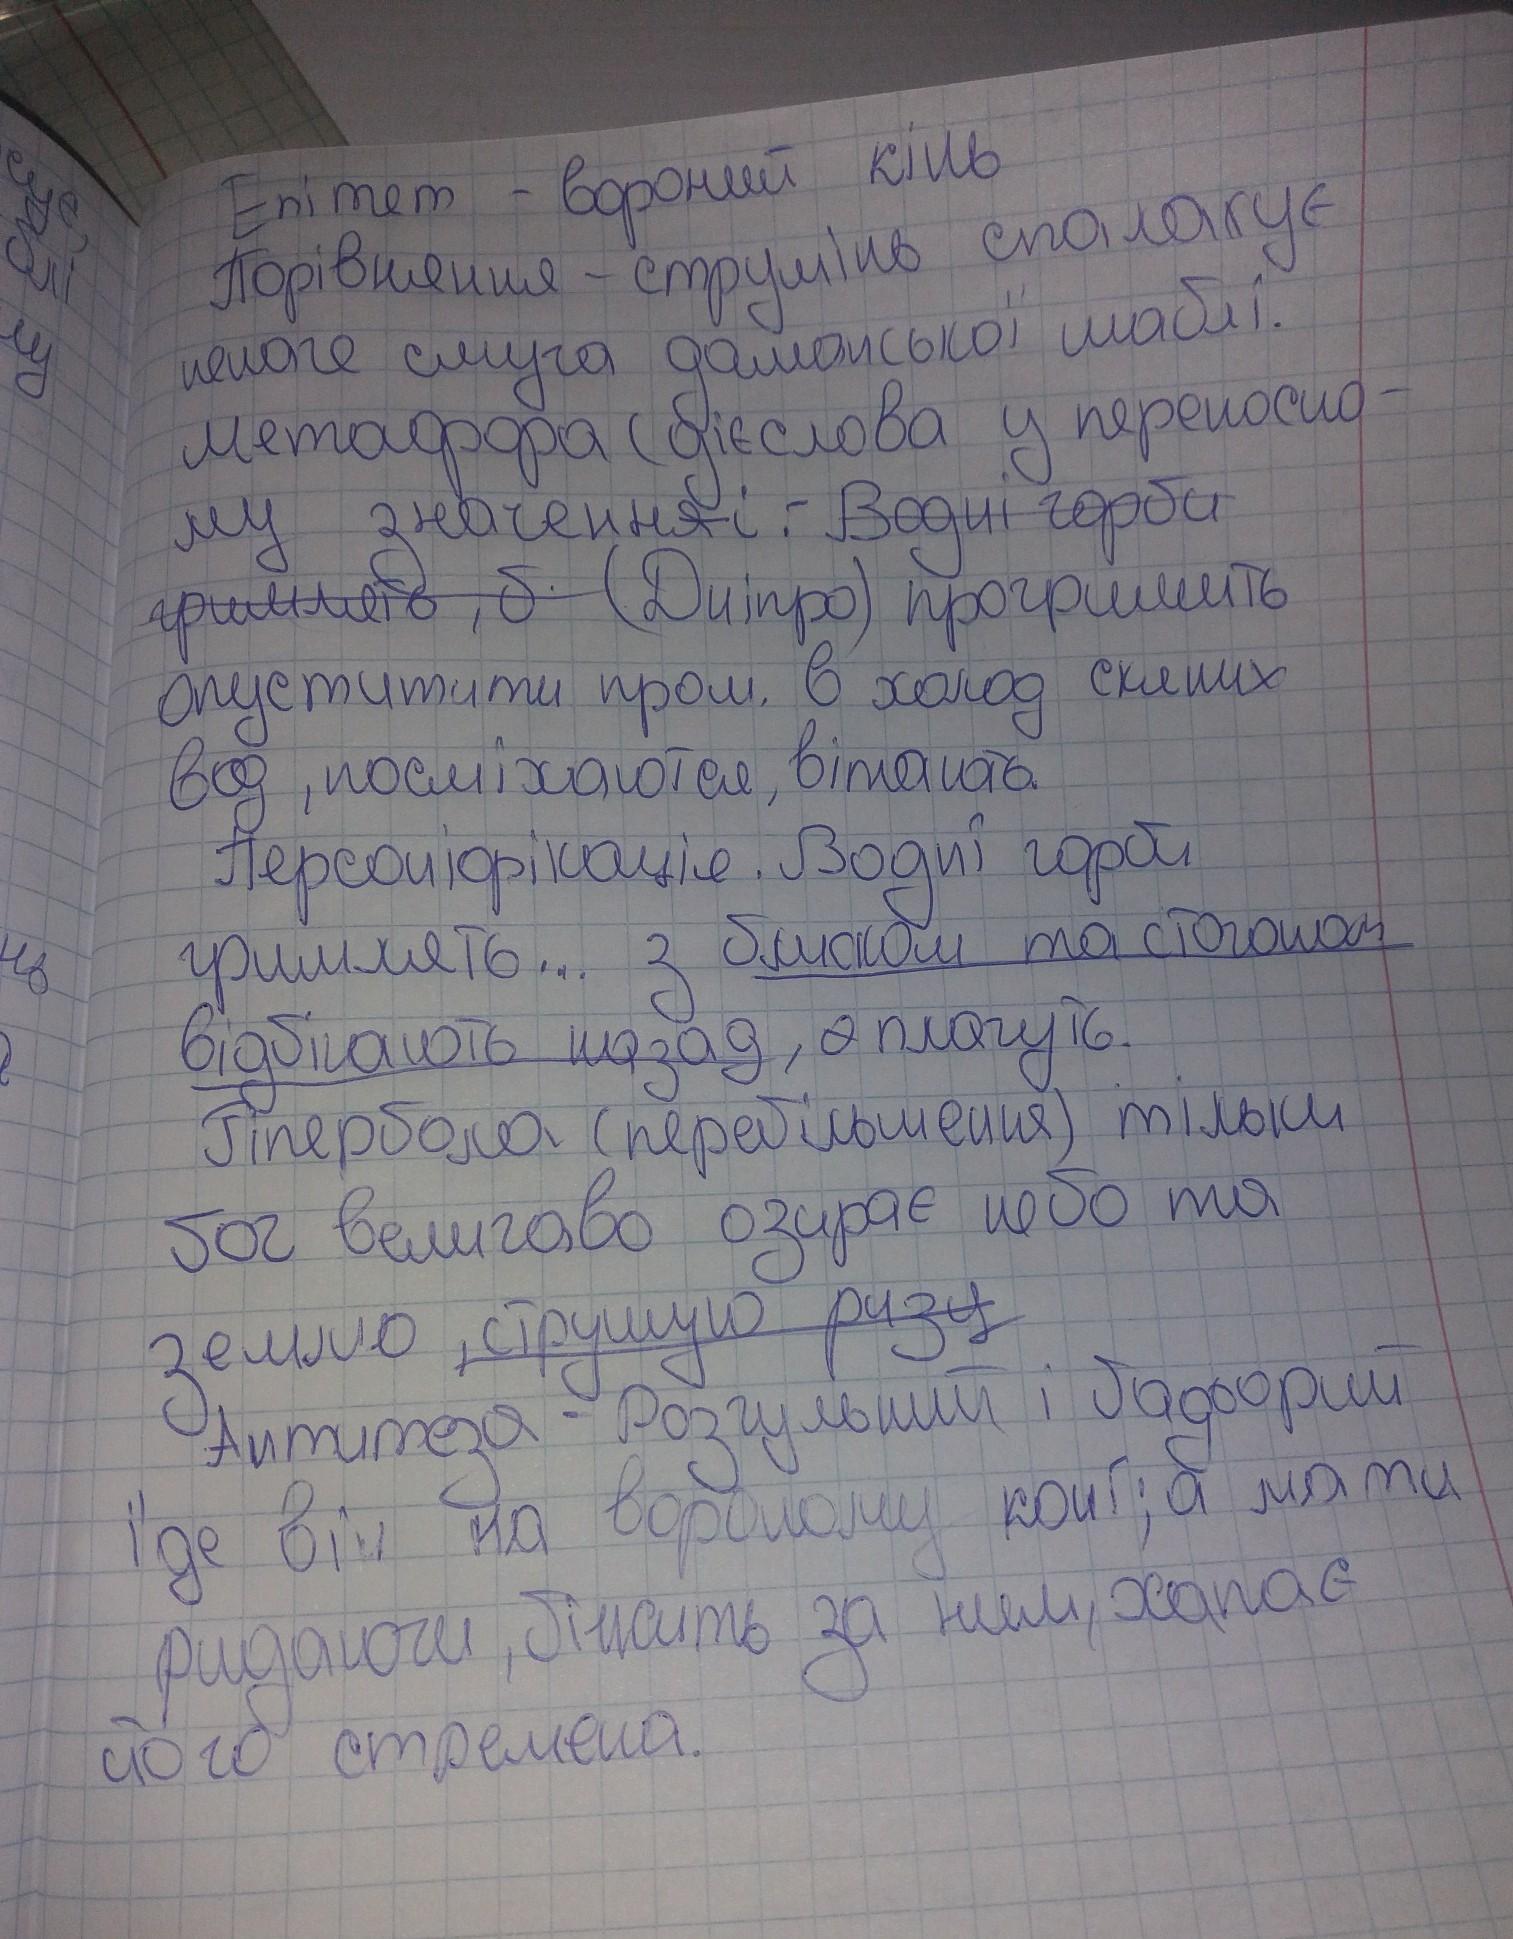 Епітет - вороний кінь
Порівняння - струмінь спалахує
неначе смуга дамаської шаблі.
Метафора (дієслова у переносно-
му значенні: - Водні горби
гримлять, б. (Дніпро) прогримить
опуститити пром. в холод скляних
вод, посміхаються, вітають.
Персоніфікація. Водні горби
гримлять... з блиском та стогоном
відбігають назад, а плачуть.
Гіпербола (перебільшення) тільки
бог величаво озирає небо та
землю, струшую ризу
Антитеза - Розгульний і бадьорий
їде він на вороному коні; а мати
ридаючи, біжить за ним, хапає
його стремена.